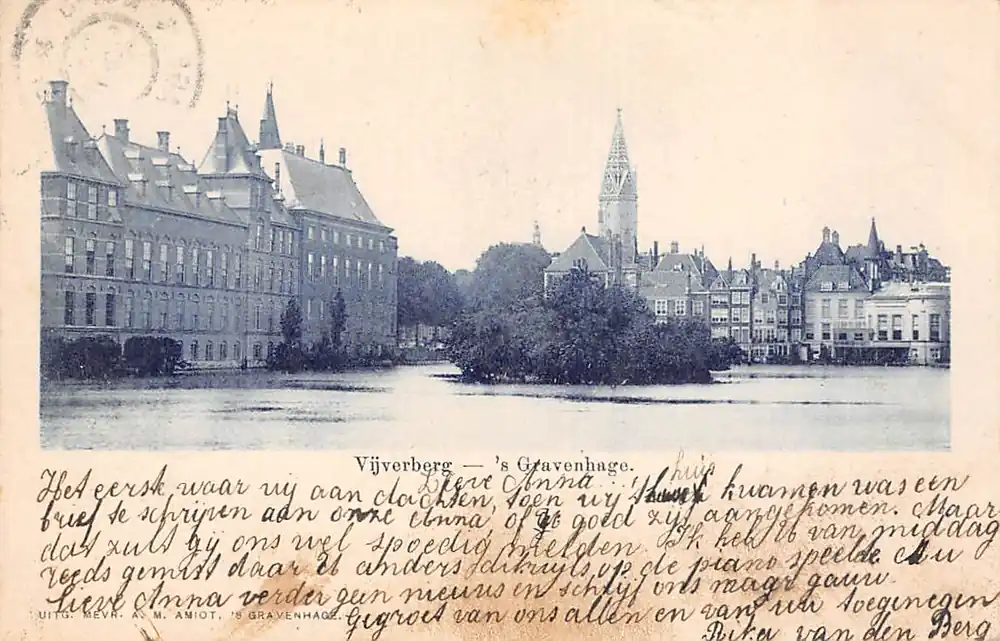 Vijverberg — 's Gravenhage.
Lieve Anna...!
Het eerste, waar wij aan dachten, toen wij thuis kwamen was een
brief te schrijven aan onze Anna, of ge goed zijt aangekomen. Maar
dat zult gij ons wel spoedig melden. Ik heb U van middag
reeds gemist daar U anders dikwijls op de piano speelde. Nu
Lieve Anna verder geen nieuws en schrijf ons maar gauw.
Gegroet van ons allen en van uw toegenegen
Rika van den Berg
UITG. MEVR. A. M. AMIOT, 'S GRAVENHAGE.